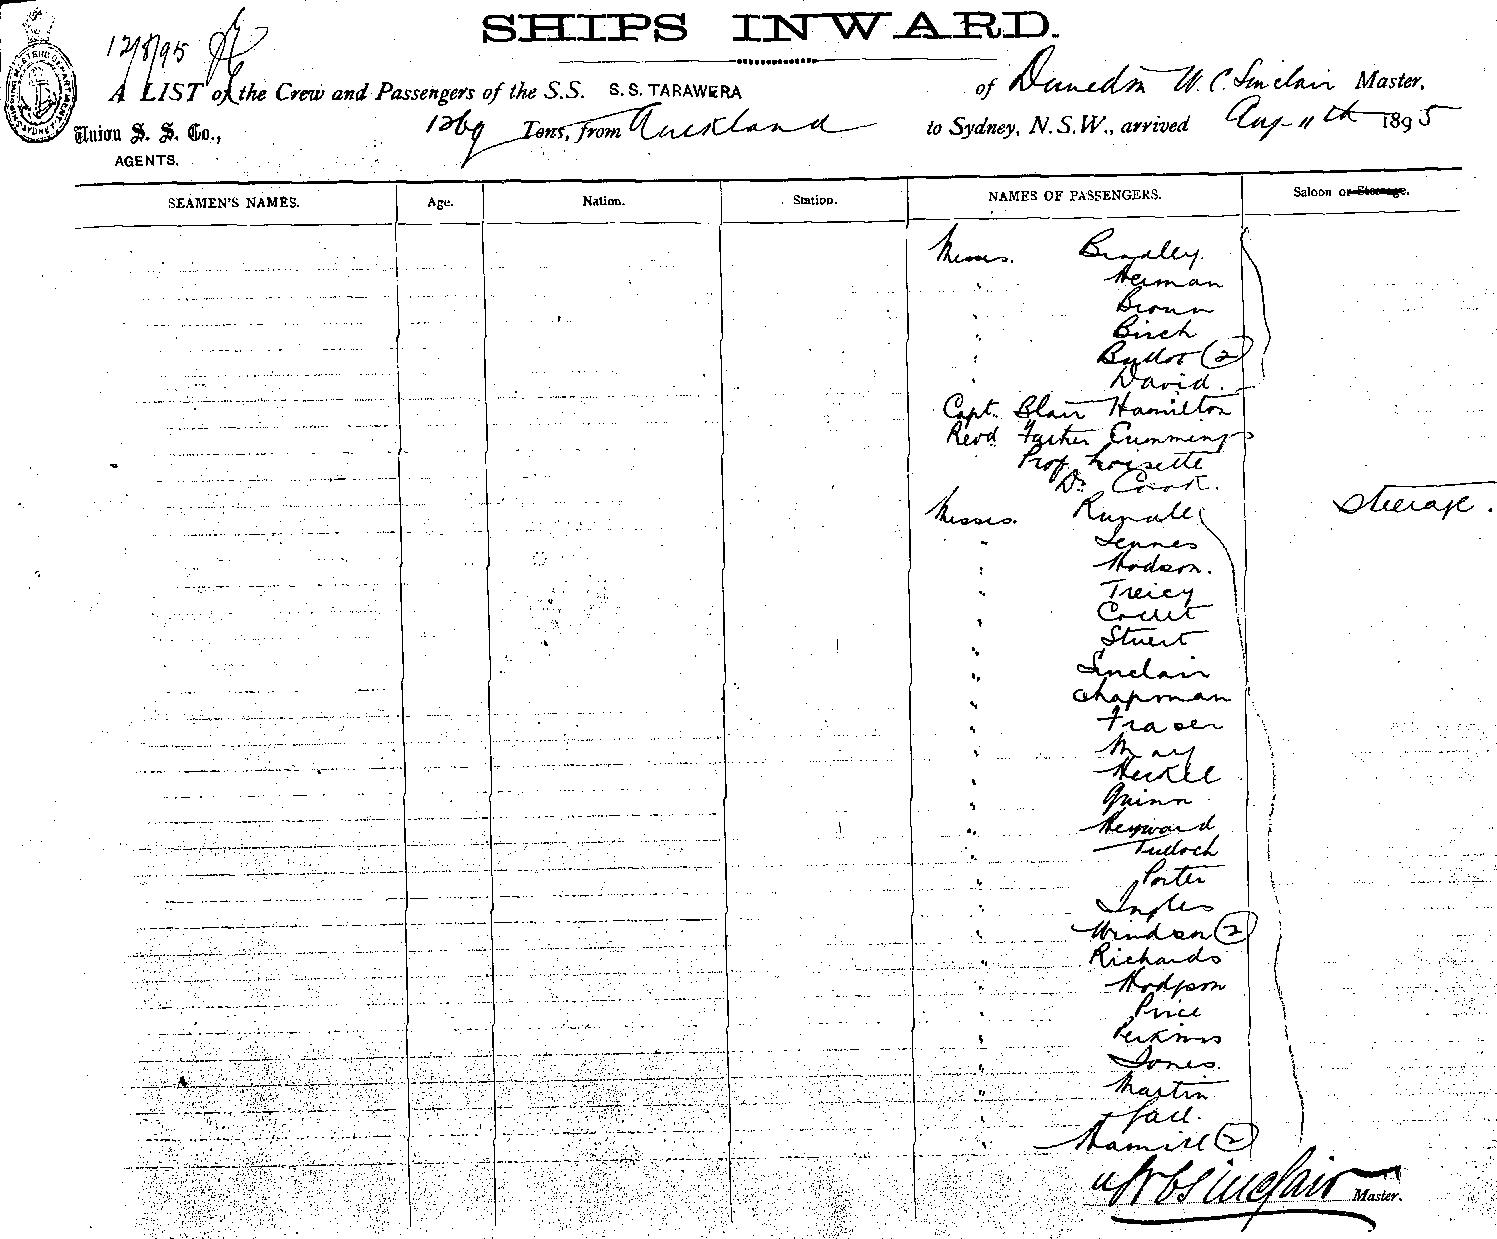 SHIPS INWARD.
12/8/95
A LIST of the Crew and Passengers of the S.S. S.S. TARAWERA of Dunedin W. C. Sinclair Master,
Union S. S. Co., 1269 Tons, from Auckland to Sydney, N.S.W., arrived Aug 11th 1895
AGENTS.
SEAMEN'S NAMES. Age. Nation. Station. NAMES OF PASSENGERS. Saloon or Steerage.
Messrs. Bradley.
" Herman
" Brown
" Birch
" (2)
" David.
Capt. Blair Hamilton
Revd Father Cummings
Prof Loisette
Dr. Cook.
Messrs. Steerage.
"
" Hodson.
" Treicy
"
" Stuert
" Sinclair
" Chapman
" Fraser
" May
"
" Quinn
" Heyward
" Tulloch
" Porter
" Ingles
" Windsor (2)
" Richards
" Hodgson
" Price
" Perkins
" Jones.
" Martin
"
" (2)
W C Sinclair Master.